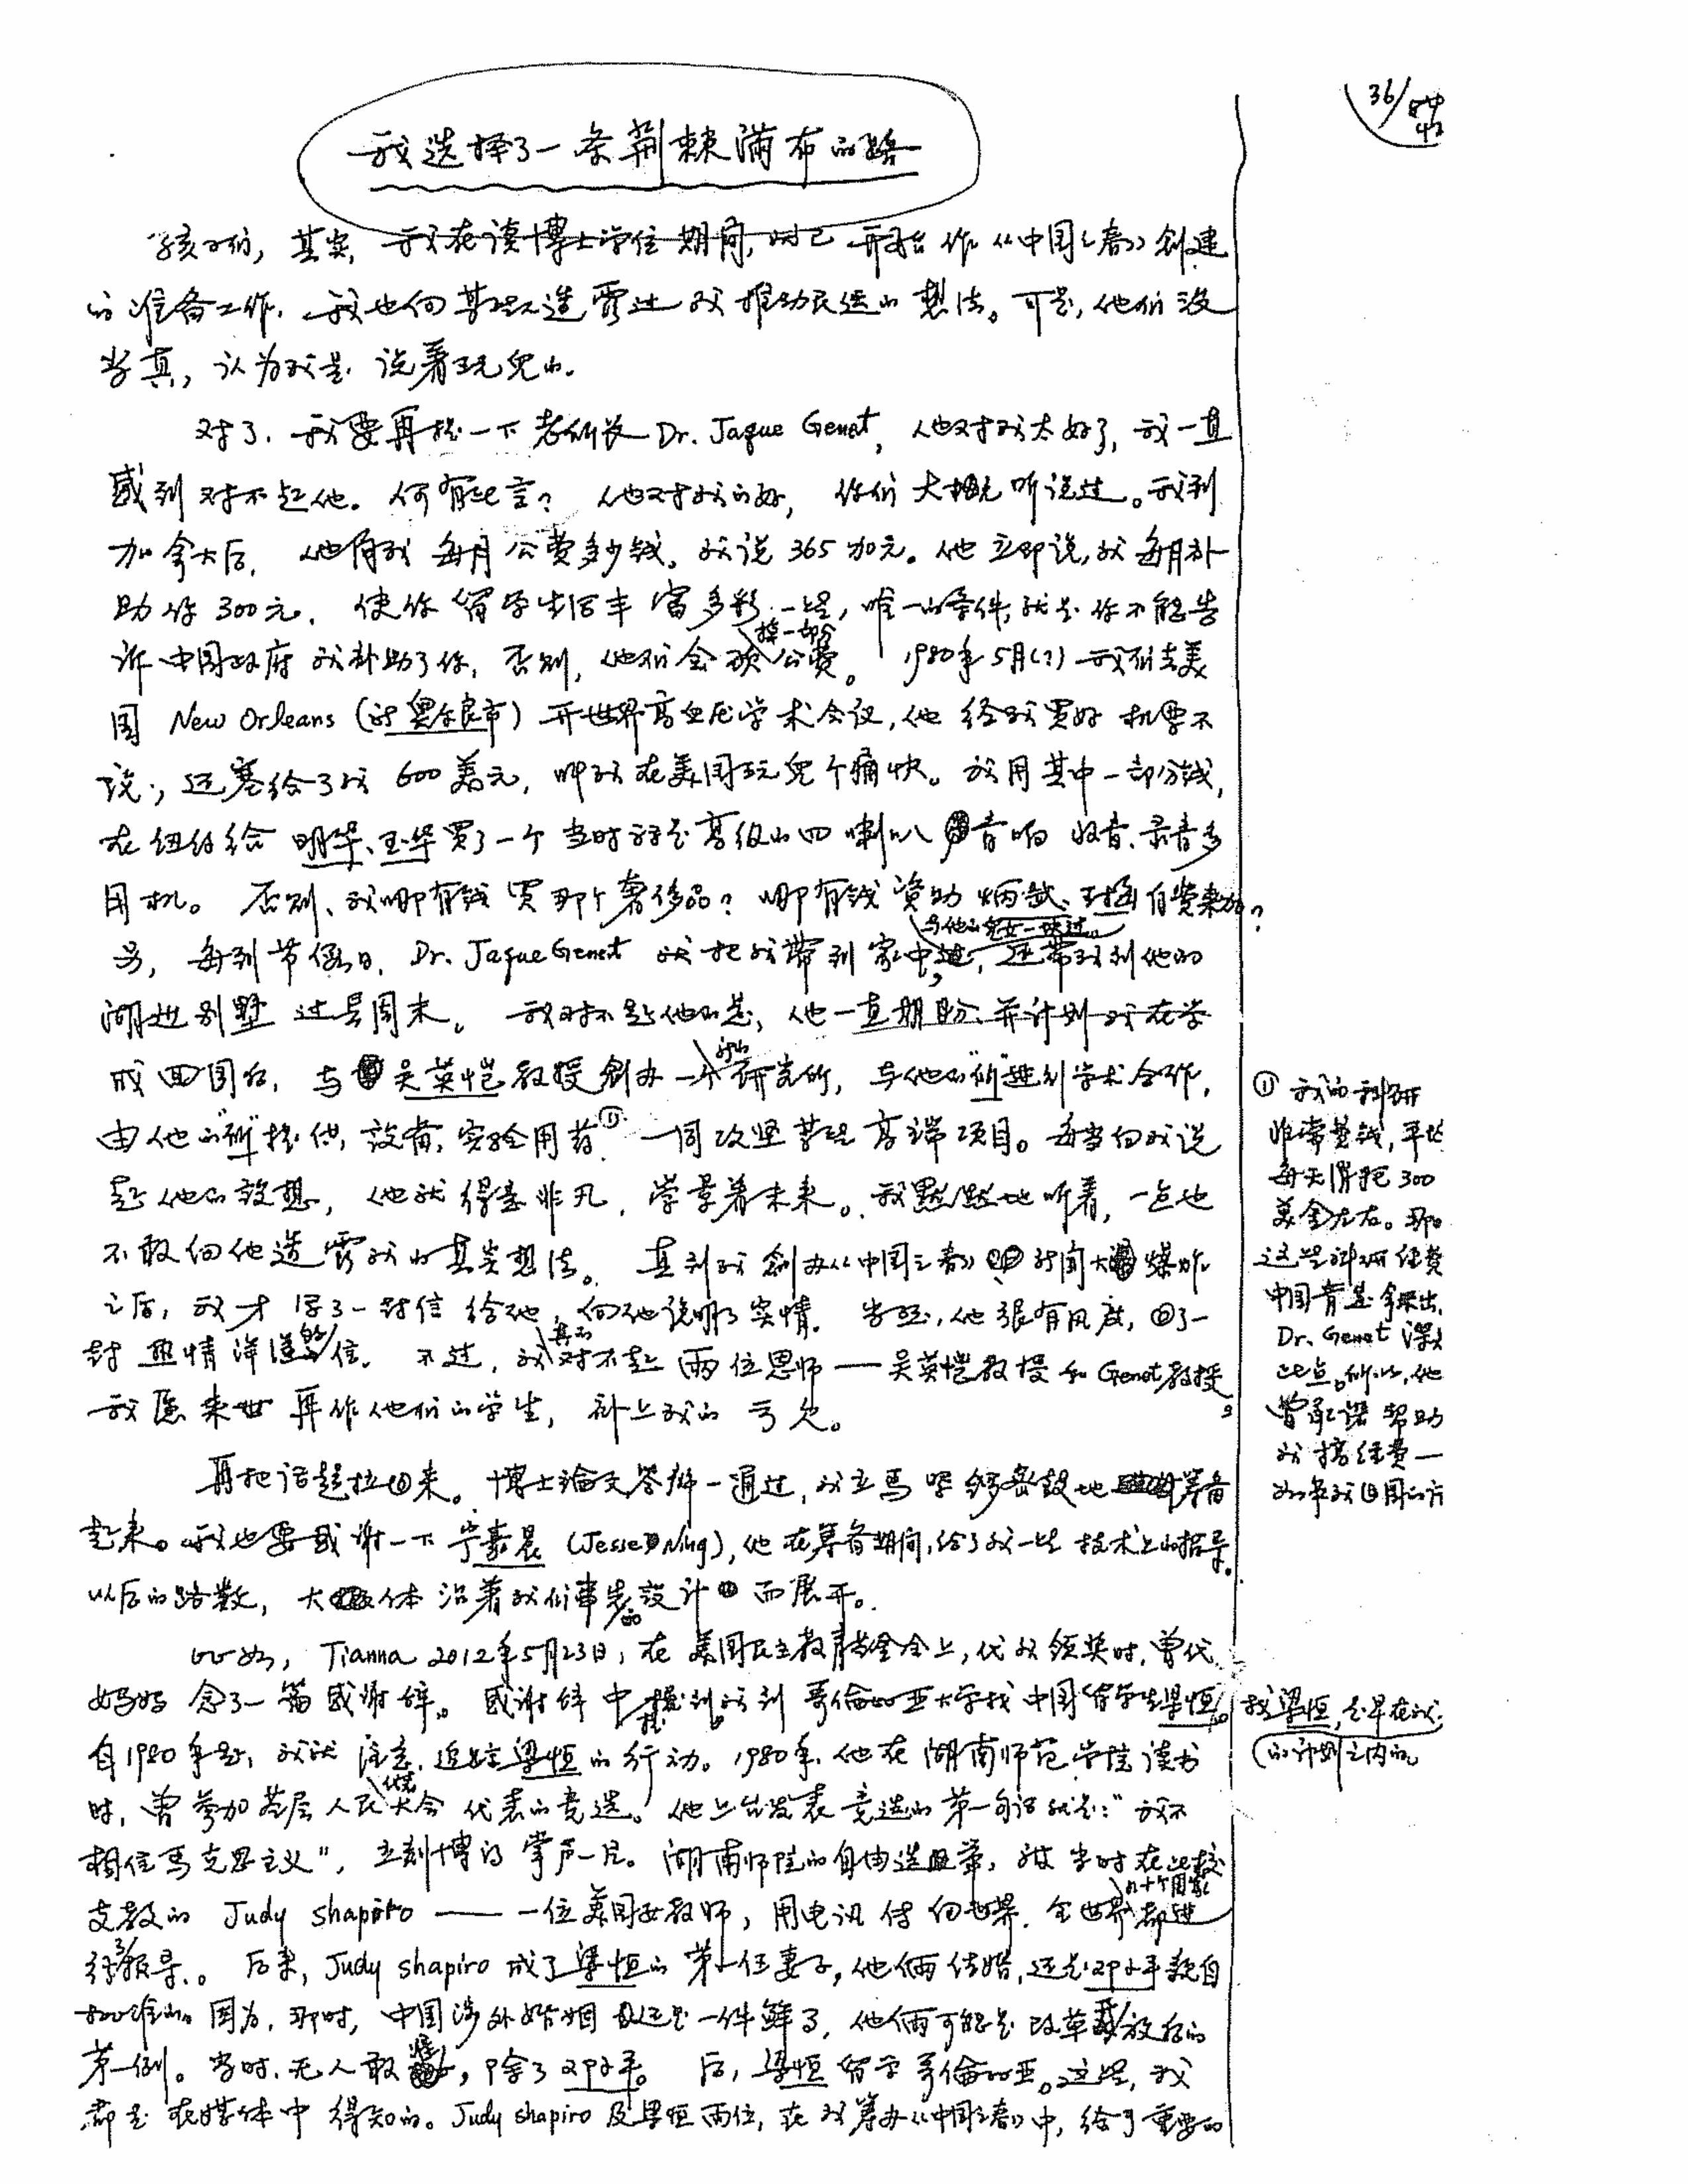 36/
我选择了一条荆棘满布的路
孩子们，其实，我在读博士学位期间，时已开始作《中国之春》创建
的准备工作。我也向某些人透露过我推动民运的想法。可是，他们没
当真，认为我是说着玩儿的。
对了，我要再提一下老所长Dr. Jaque Genest，他对我太好了，我一直
感到对不起他。何有此言？他对我的好，你们大概听说过。我到
加拿大后，他问我每月公费多少钱。我说365加元。他立即说，我每月补
助你300元，使你留学生活丰富多彩一些，唯一的条件，就是你不能告
诉中国政府我补助了你，否则，他们会砍掉一部分公费。1980年5月(?)我们去美
国New Orleans（新奥尔良市）开世界高血压学术会议，他给我买好机票不
说，还塞给了我600美元，叫我在美国玩儿个痛快。我用其中一部分钱，
在纽约给明华、玉华买了一个当时算是高级的四喇叭音响收音、录音多
用机。否则，我哪有钱买那个奢侈品？哪有钱资助炳武、自费来加？
另，每到节假日，Dr. Jaque Genest就把我带到家中，与他的儿女一块过。还带我到他的
湖边别墅过长周末。我对不起他的是，他一直期盼、并计划我在学
成回国后，与吴英恺教授创办一个新的研究所，与他的"所"进行学术合作，
由他的"所"提供设备，实验用药①，一同攻坚某些高端项目。每当向我说
起他的设想，他就得意非凡，憧憬着未来。我默默地听着，一点也
不敢向他透露我的真实想法。直到我创办《中国之春》新闻大爆炸
之后，我才写了一封信给他，向他说明了实情。当然，他很有风度，回了一
封热情洋溢的信。不过，我真的对不起两位恩师——吴英恺教授和Genest教授，
我愿来世再作他们的学生，补上我的亏欠。
① 我的科研
非常费钱，平均
每天得耗300
美金左右。那
这些科研经费
中国肯定拿不出，
Dr. Genest深知
此点。所以，他
曾承诺帮助
我搞经费——
如果我回国的话
再把话题拉回来。博士论文答辩一通过，我立马紧锣密鼓地筹备
起来。我也要感谢一下宁嘉晨（Jesse Ning），他在筹备期间，给了我一些技术上的指导。
以后的路数，大体沿着我们事先的设计而展开。
比如，Tianna 2012年5月23日，在美国民主教育基金会上，代我领奖时，曾代
妈妈念了一篇感谢辞。感谢辞中提到我到哥伦比亚大学找中国留学生梁恒。
找梁恒，是早在我
的计划之内的。
自1980年起，我就注意、追踪梁恒的行动。1980年，他在湖南师范学院读书
时，曾参加基层人民代表大会代表的竞选。他上台发表竞选的第一句话就是："我不
相信马克思主义"，立刻博得掌声一片。湖南师院的自由选举，被当时在此校
支教的Judy shapiro——一位美国女教师，用电讯传向世界，全世界几十个国家都进
行了报导。后来，Judy shapiro成了梁恒的第一任妻子，他俩结婚，还是邓小平亲自
批准的。因为，那时，中国涉外婚姻还是一件鲜事，他俩可能是改革开放后的
第一例。当时，无人敢批，除了邓小平。后，梁恒留学哥伦比亚。这些，我
都是在媒体中得知的。Judy shapiro及梁恒两位，在我筹办《中国之春》中，给了重要的